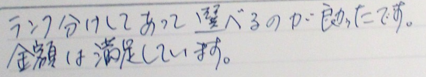 ランク分けしてあって選べるのが良かったです。
金額は満足しています。